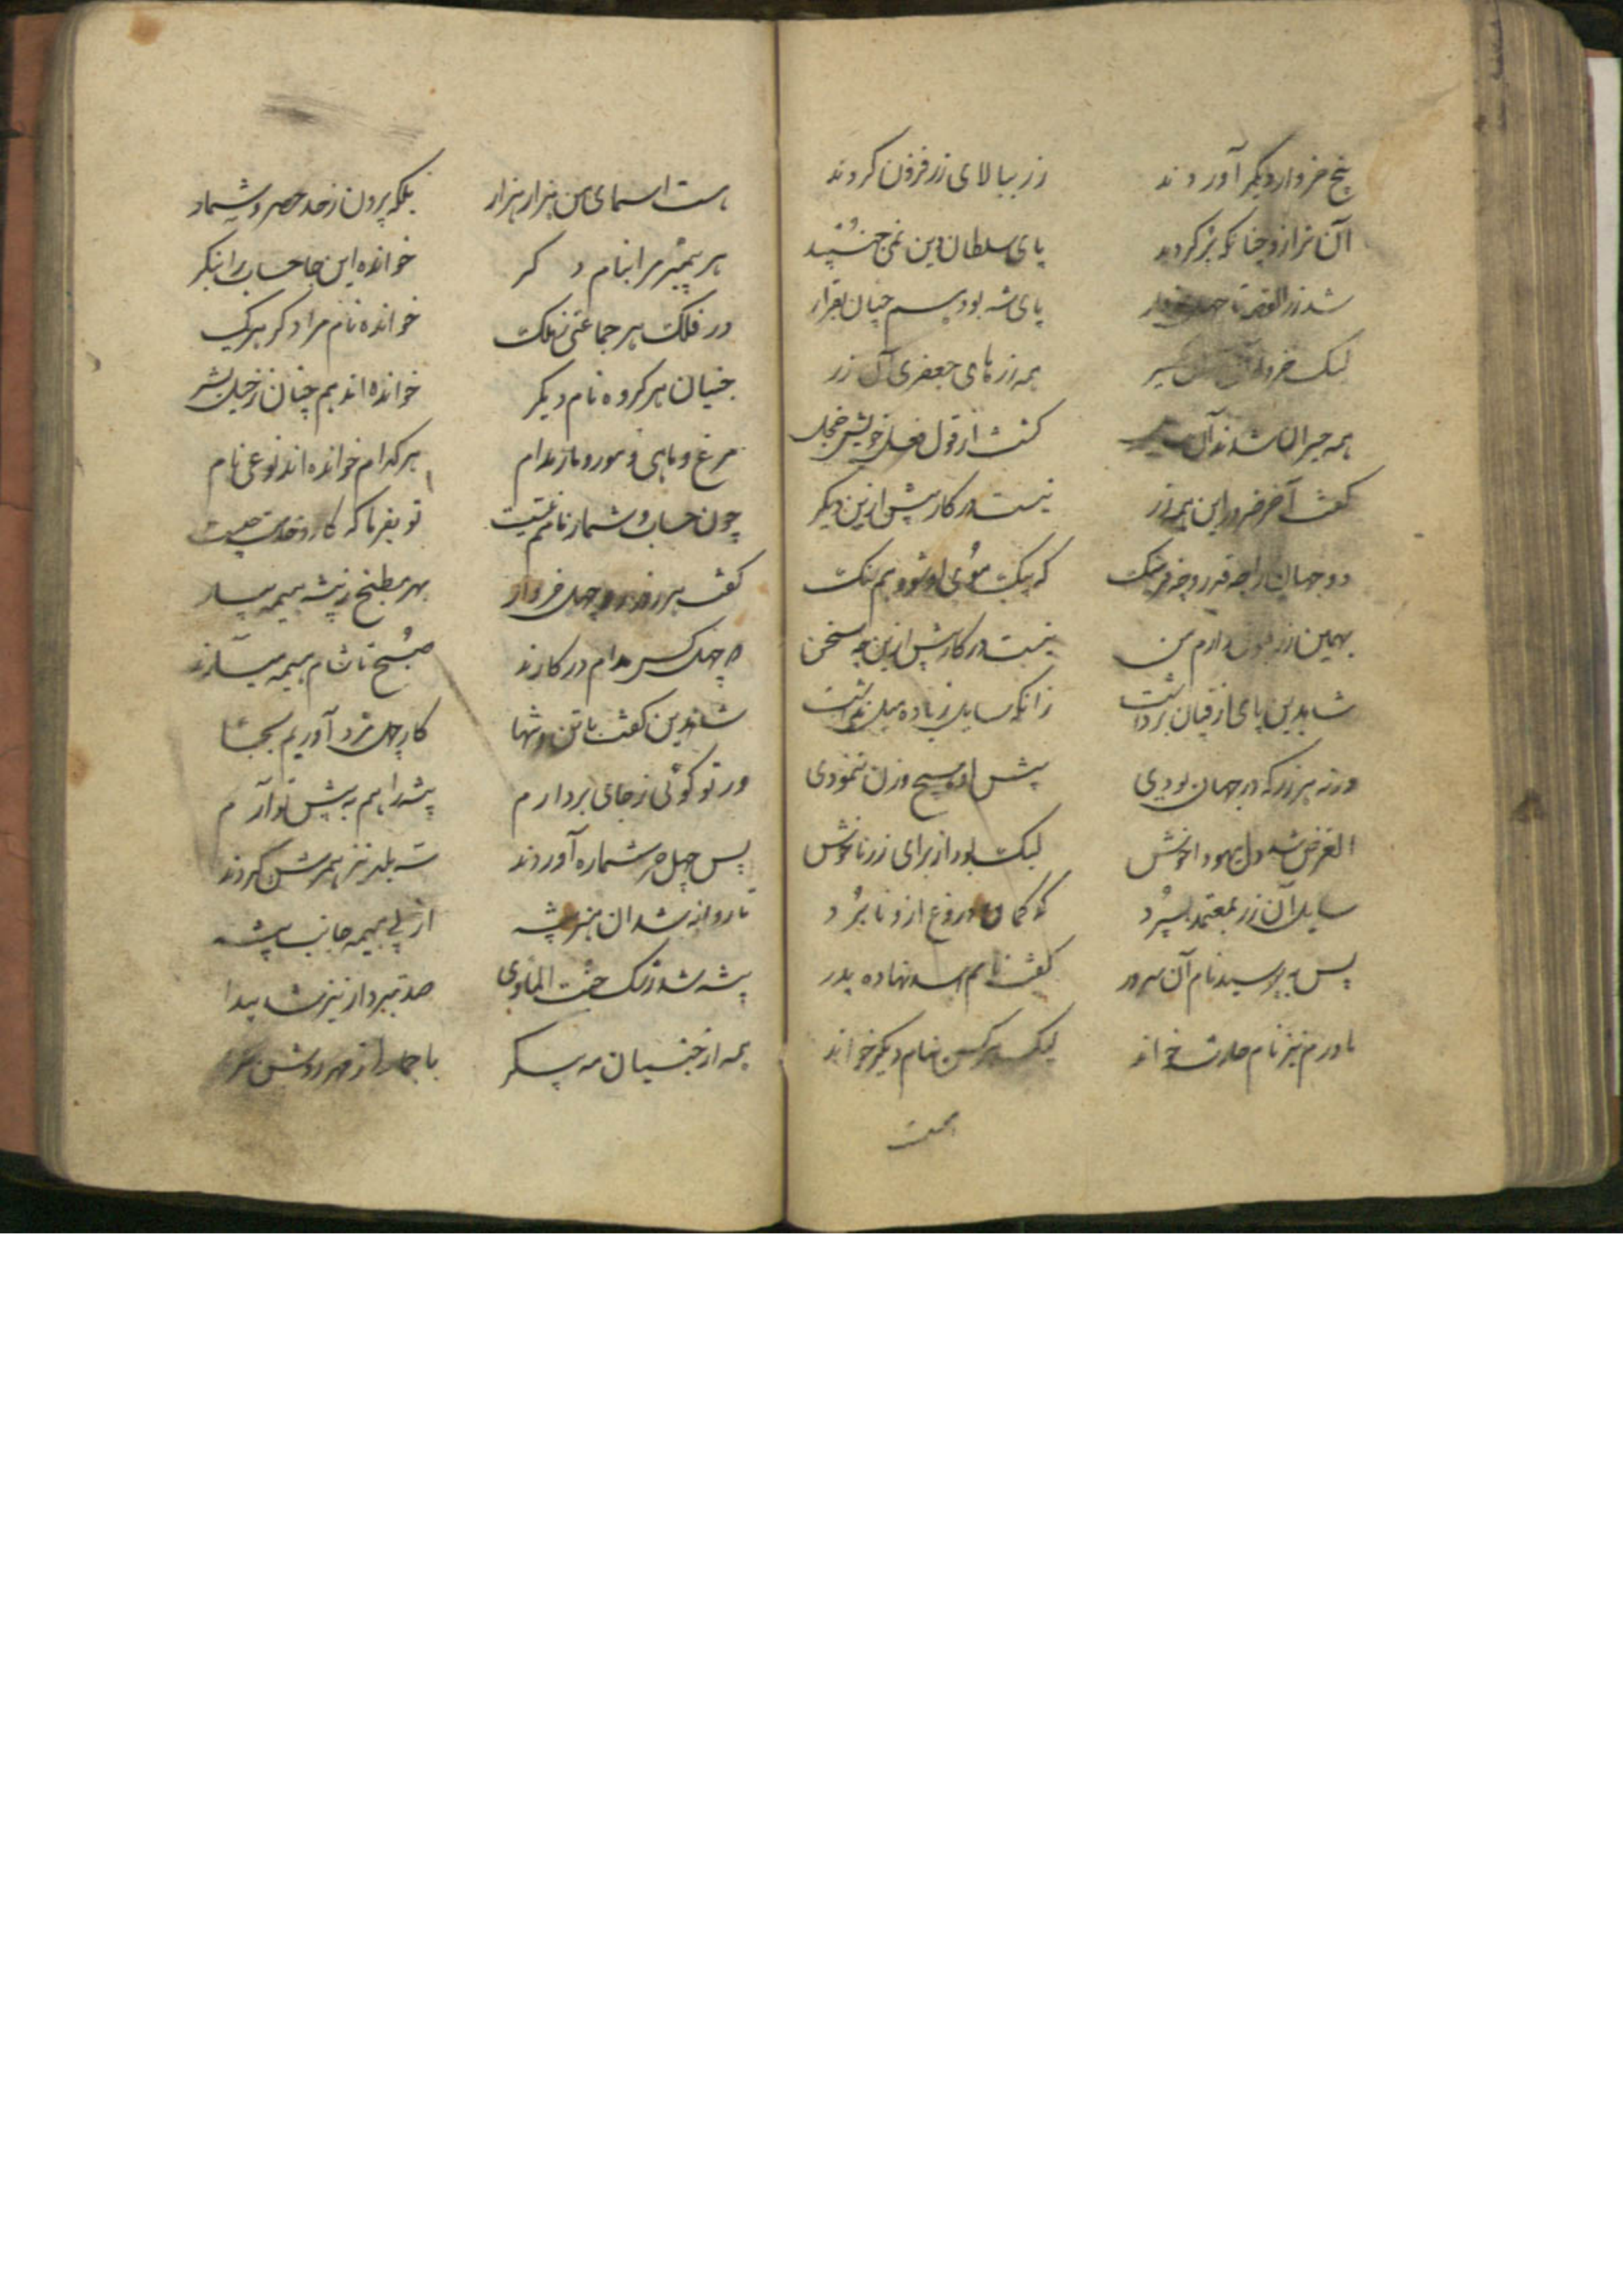 پنج خروار دیگر آوردند زر ببالای زر فزون کردند
آن ترازو چنانکه پر کردند پای سلطان دین نمی جنبید
شد زر القصه تا چهل خروار پای شه بود هم چنان بقرار
لیک خروار همه زرهای جعفری آن زر
همه حیران شدند آن گشت از قول و فعل خویش خجل
گفت آخر ضرور این همه زر نیست در کار پیش ازین دیگر
دو جهان را چه قدر و چه فر سنگ که بیک موی او شود هم سنگ
بهمین زر دارم من نیست در کار پیش ازین چه سخن
شاه دین پای از قپان برداشت زانکه سایل زیاده میل نداشت
ورنه هر زر که در جهان بودی پیش او هیچ وزن ننمودی
الغرض شد دل یهودا خوش لیک بود از برای زر ناخوش
سایل آن زر بمعتمد بسپرد که گمان دروغ ازو نابرد
پس بپرسید نام آن سرور گفت نامم اسد نهاده پدر
مادرم نیز نام حارث خواند لیک هر کس بنام دیگر خواند
هست
هست اسمای من هزار هزار بلکه بیرون ز حد حصر و شمار
هر پیمبر مرا بنام دگر خوانده این جا حساب را بنگر
در فلک هر جماعتی ز ملک خوانده نام مرا دگر هر یک
جنیان هر گروه نام دیگر خوانده اند هم چنان ز خیل بشر
مرغ و ماهی و مور و مار مدام هر کدام خوانده اند نوعی نام
چون حساب و شمار نامم نیست تو بفرما که کار و خدمت چیست
گفت هر روز چهل خروار بهر مطبخ ز بیشه هیمه بیار
چهل کس مدام در کارند صبح تا شام هیمه میآرند
شاه دین گفت با تن تنها کار چل مرد آوریم بجا
ور تو گوئی ز جای بردارم بیشه را هم به پیش تو آرم
پس چهل خر شماره آوردند سه بلد نیز همرهش کردند
تا روانه شد آن هنر پیشه از پی هیمه جانب بیشه
بیشه شد رشک جنت الماوی صد تبردار نیز شد پیدا
همه از جنیان مه پیکر با جمال